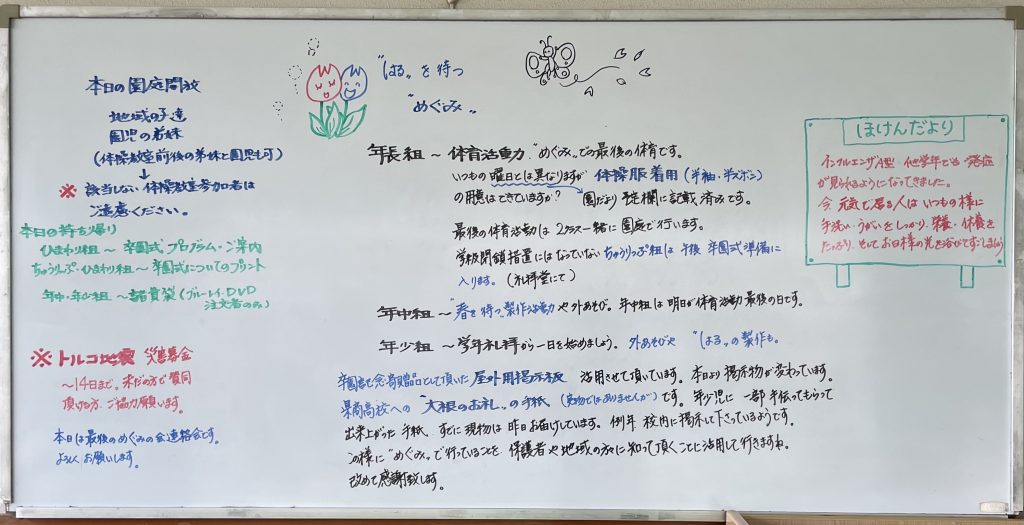 本日の園庭開放
地域の子達
園児の弟妹
(体操教室前後の弟妹と園児も可)
※ 該当しない体操教室参加者は
ご遠慮ください。
本日の持ち帰り
ひまわり組〜卒園式プログラム・ご案内
ちゅうりっぷ・ひまわり組〜卒園式についてのプリント
年中・年少組〜諸費袋(ブルーレイ・DVD
注文者のみ)
※トルコ地震 災害募金
〜14日まで。未だの方で賛同
頂ける方、ご協力願います。
本日は最後のめぐみの会連絡会です。
よろしくお願いします。
"はる"を待つ
"めぐみ"
年長組〜体育活動 "めぐみ"での最後の体育です。
いつもの曜日とは異なりますが 体操服着用(半袖・半ズボン)
の用意はできていますか? 園だより予定欄に記載済みです。
最後の体育活動は2クラス一緒に園庭で行います。
学級閉鎖措置にはなっていないちゅうりっぷ組は午後卒園式準備に
入ります。(礼拝堂にて)
年中組〜"春を待つ"製作活動や外あそび。年中組は明日が体育活動最後の日です。
年少組〜学年礼拝から一日を始めましょう。外あそびや "はる"の製作も。
卒園記念寄贈品として頂いた屋外用掲示板 活用させて頂いています。本日より掲示物が変わっています。
県商高校への"大根のお礼"の手紙(実物ではありませんが)です。年少児に一部手伝ってもらって
出来上がった手紙、すでに現物は昨日お届けしています。例年校内に掲示して下さっているようです。
この様に"めぐみ"で行っていることを保護者や地域の方々に知って頂くことに活用して行きますね。
改めて感謝致します。
ほけんだより
インフルエンザA型 他学年でも発症
が見られるようになってきました。
今元気で居る人はいつもの様に
手洗い・うがいをしっかり、栄養・休養を
たっぷり、そしてお日様の光を浴びてすごしましょう